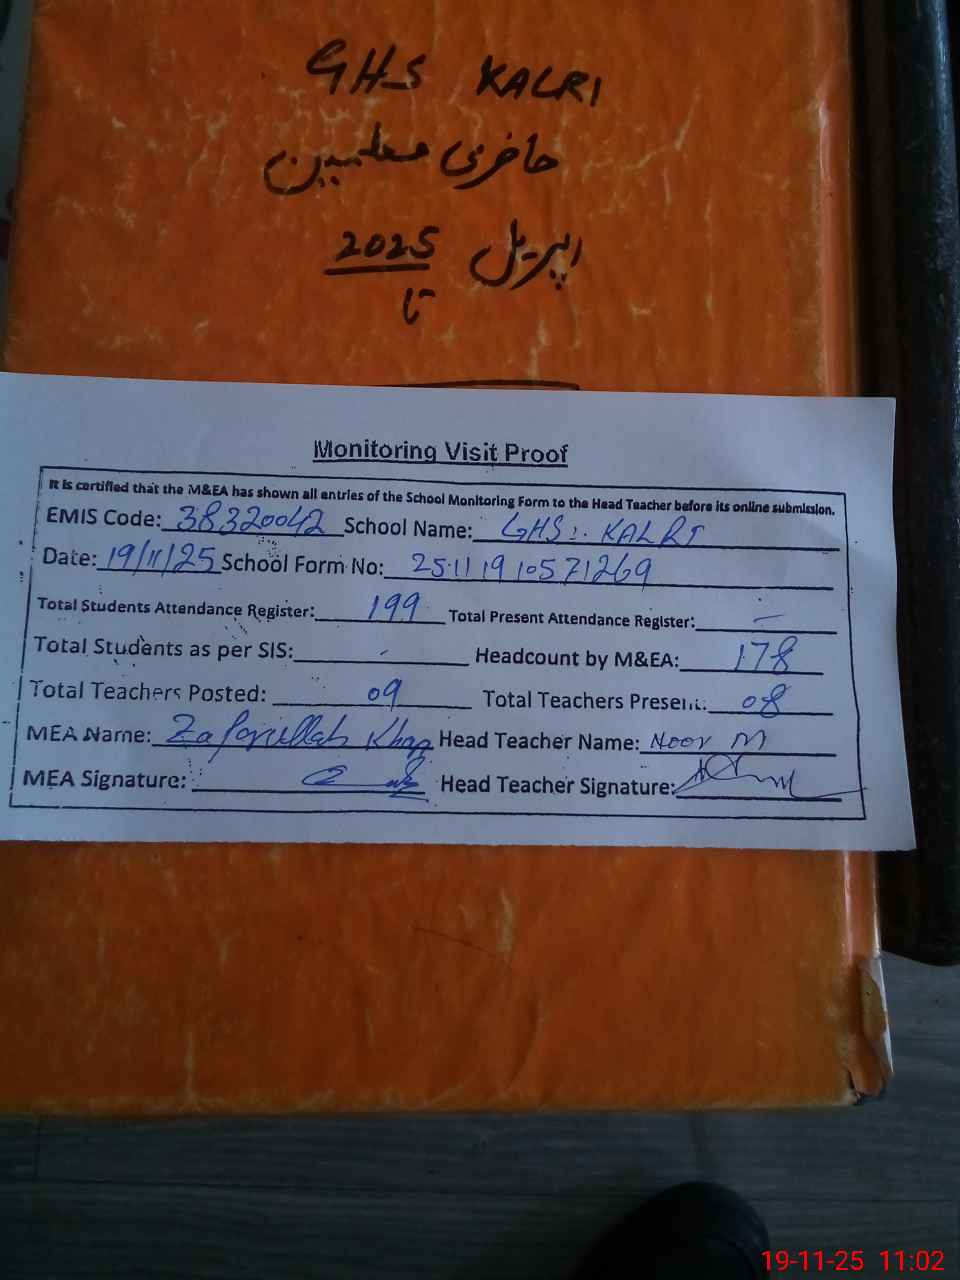 GHS KALRI
حاضری معلمین
اپریل 2025
تا
Monitoring Visit Proof
It is certified that the M&EA has shown all entries of the School Monitoring Form to the Head Teacher before its online submission.
EMIS Code: 38320042 School Name: GHS: KALRI
Date: 19/11/25 School Form No: 25111910571269
Total Students Attendance Register: 199 Total Present Attendance Register: -
Total Students as per SIS: - Headcount by M&EA: 178
Total Teachers Posted: 09 Total Teachers Present: 08
MEA Name: Zafarullah Khan Head Teacher Name: Noor M
MEA Signature: Head Teacher Signature:
19-11-25 11:02